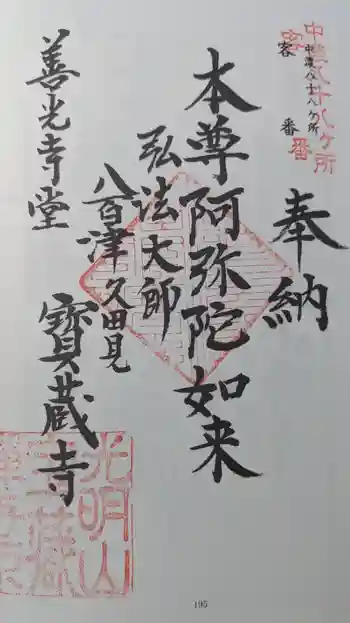 中濃八十八ヶ所
客番
中濃八十八ヶ所
客番
奉納
本尊阿弥陀如来
弘法大師
八百津久田見
善光寺堂
寳蔵寺
光明山
195